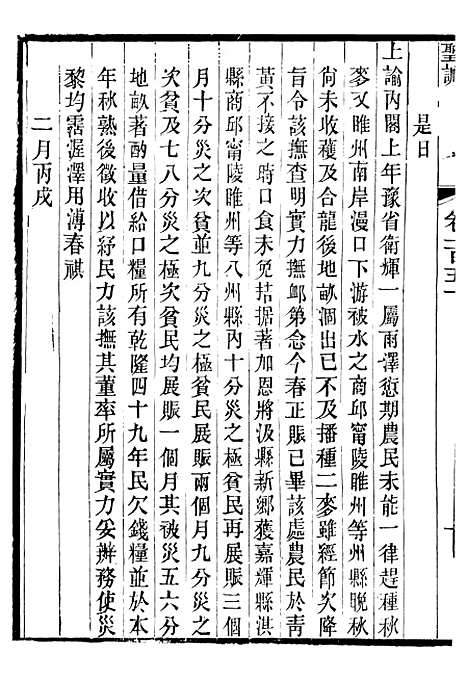 是日
上諭內閣上年豫省衛輝一屬雨澤愆期農民未能一律趕種秋
麥又睢州南岸漫口下游被水之商邱甯陵睢州等州縣晚秋
尙未收穫及合龍後地畝涸出已不及播種二麥雖經節次降
旨令該撫查明實力撫卹第念今春正賑已畢該處農民於青
黃不接之時口食未免拮据著加恩將汲縣新鄉獲嘉輝縣淇
縣商邱甯陵睢州等八州縣內十分災之極貧民再展賑三個
月十分災之次貧並九分災之極貧民展賑兩個月九分災之
次貧及七八分災之極次貧民均展賑一個月其被災五六分
地畝著酌量借給口糧所有乾隆四十九年民欠錢糧並於本
年秋熟後徵收以紓民力該撫其董率所屬實力妥辦務使災
黎均霑渥澤用溥春祺
二月丙戌